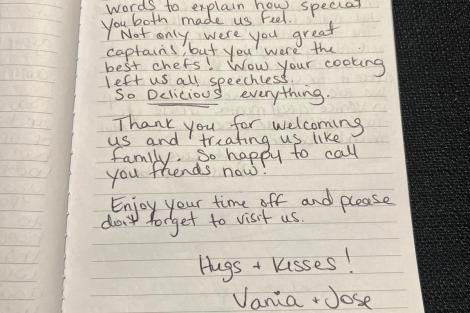 words to explain how special
you both made us feel.
Not only were you great
captains, but you were the
best chefs! Wow your cooking
left us all speechless.
So Delicious everything.
Thank you for welcoming
us and treating us like
family. So happy to call
you friends now!
Enjoy your time off and please
don't forget to visit us.
Hugs + Kisses!
Vania + Jose